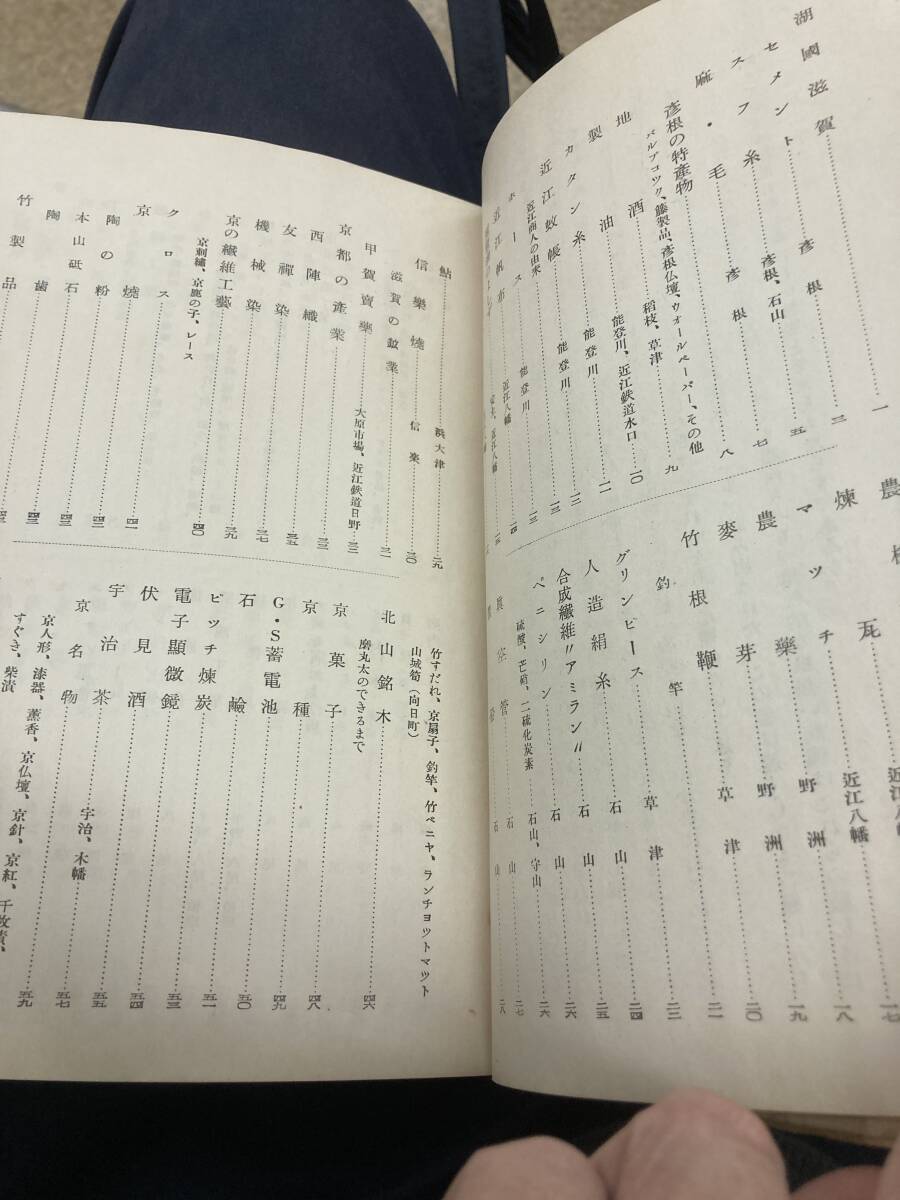 湖國滋賀……一
セメント……彦根……二
スフ糸……彦根、石山……五
麻・毛……彦根……七
彦根の特産物……八
バルブコック、籐製品、彦根仏壇、ウォールペーパー、その他
地酒……稻枝、草津……九
製油……能登川、近江鉄道水口……一〇
カタン糸……能登川……一一
近江蚊帳……能登川……一二
近江商人の由来……一三
ホース……能登川……一三
近江帆布……近江八幡……一四
瓦……近江八幡……一七
煉……近江八幡……一八
マッチ……野洲……一九
農藥……野洲……二〇
麥芽……草津……二一
竹根鞭
釣竿……二三
グリンピース……草津……二四
人造絹糸……石山……二五
合成繊維〃アミラン〃……石山……二六
ペニシリン……石山、守山……二六
硫酸、芒硝、二硫化炭素
眞空管……石山……二七
鮎……浜大津……二九
信樂燒……信楽……三〇
滋賀の鉱業……三一
甲賀賣藥……大原市場、近江鉄道日野……三二
京都の産業……三三
西陣織……三五
友禪染……三七
機械染……三九
京の繊維工藝……四〇
京刺繡、京鹿の子、レース
クロス
京燒……四一
陶の粉……四二
本山砥石……四三
陶歯……四三
竹製品
竹すだれ、京扇子、釣竿、竹ベニヤ、ランチョットマット
山城筍（向日町）
北山銘木……四六
磨丸太のできるまで
京菓子……四八
京種……四九
G・S蓄電池……五〇
石鹼……五一
ピッチ煉炭……五三
電子顯微鏡……五四
伏見酒……五五
宇治茶……宇治、木幡……五七
京名物……五九
京人形、漆器、薫香、京仏壇、京針、京紅、千枚漬、
すぐき、柴漬